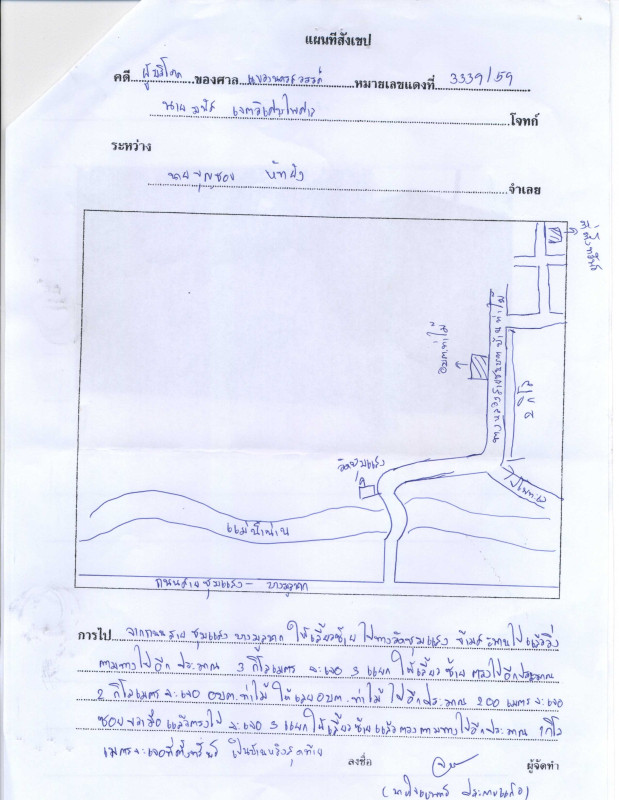 แผนที่สังเขป
คดี ผู้บริโภค ของศาล แขวงนครสวรรค์ หมายเลขแดงที่ 3339/59
นาย โจทก์
ระหว่าง
นายบุญชอบ จำเลย
ที่ตั้งทรัพย์
อบต.ท่าไม้
ทางหลวงชนบทบ้านท่าไม้
2 กิโล
วัดชุมแสง
แม่น้ำน่าน
ถนนสาย ชุมแสง - บางมูลนาก
การไป จากถนนสาย ชุมแสง บางมูลนาก ให้เลี้ยวซ้าย ไปทางวัดชุมแสง ข้ามสะพานไปแล้ววิ่ง
ตามทางไปอีก ประมาณ 3 กิโลเมตร จะเจอ 3 แยก ให้เลี้ยวซ้าย ตรงไปอีกประมาณ
2 กิโลเมตร จะเจอ อบต.ท่าไม้ ให้เลย อบต.ท่าไม้ ไปอีกประมาณ 200 เมตร จะเจอ
ซอยขวามือ แล้วตรงไป จะเจอ 3 แยก ให้เลี้ยวซ้ายแล้วตรงตามทางไปอีกประมาณ 1 กิโล
เมตร จะเจอที่ตั้งทรัพย์ เป็นบ้านหลังสุดท้าย
ลงชื่อ ผู้จัดทำ